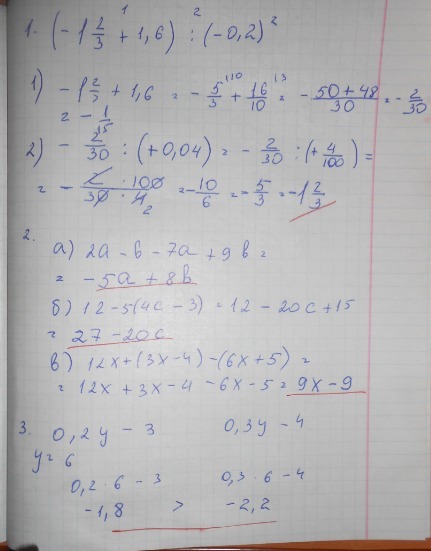 1. (-1 2/3 + 1,6) : (-0,2)²
1 2
1) -1 2/3 + 1,6 = -5/3 + 16/10 = -50+48/30 = -2/30
= -1/15
2) -2/30 : (+0,04) = -2/30 : (+4/100) =
= -2·100/30·4 = -10/6 = -5/3 = -1 2/3
2.
а) 2a - b - 7a + 9b =
= -5a + 8b
б) 12 - 5(4c - 3) = 12 - 20c + 15
= 27 - 20c
в) 12x + (3x - 4) - (6x + 5) =
= 12x + 3x - 4 - 6x - 5 = 9x - 9
3. 0,2y - 3 0,3y - 4
y = 6
0,2 · 6 - 3 0,3 · 6 - 4
-1,8 > -2,2